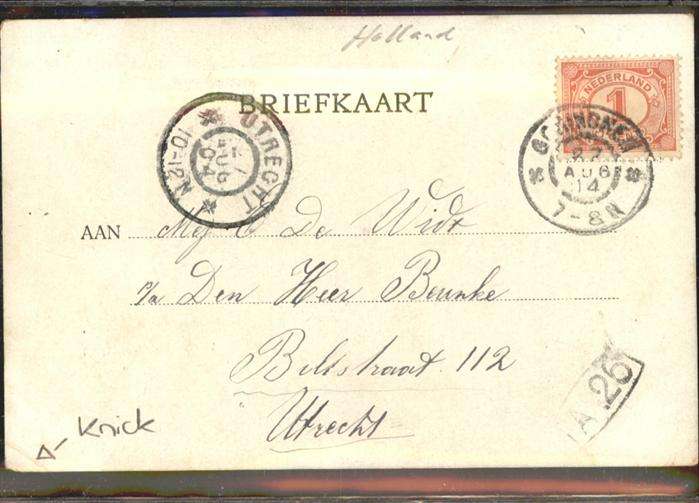 Holland
BRIEFKAART
NEDERLAND
1
UTRECHT
AUG
04
10-12 N
27
AUG
14
7-8 N
AAN Mej De Widt
p/a Den Heer Beunke
Biltstraat 112
Utrecht
A 26
Knick